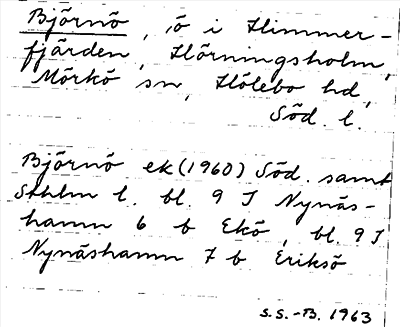 Björnö, ö i Himmer-
fjärden, Hörningsholm,
Mörkö sn, Hölebo hd,
Söd. l.
Björnö ek (1960) Söd. samt
Sthlm l. bl. 9 I Nynäs-
hamn 6 b Ekö, bl. 9 I
Nynäshamn 7 b Eriksö
S.S.-B. 1963